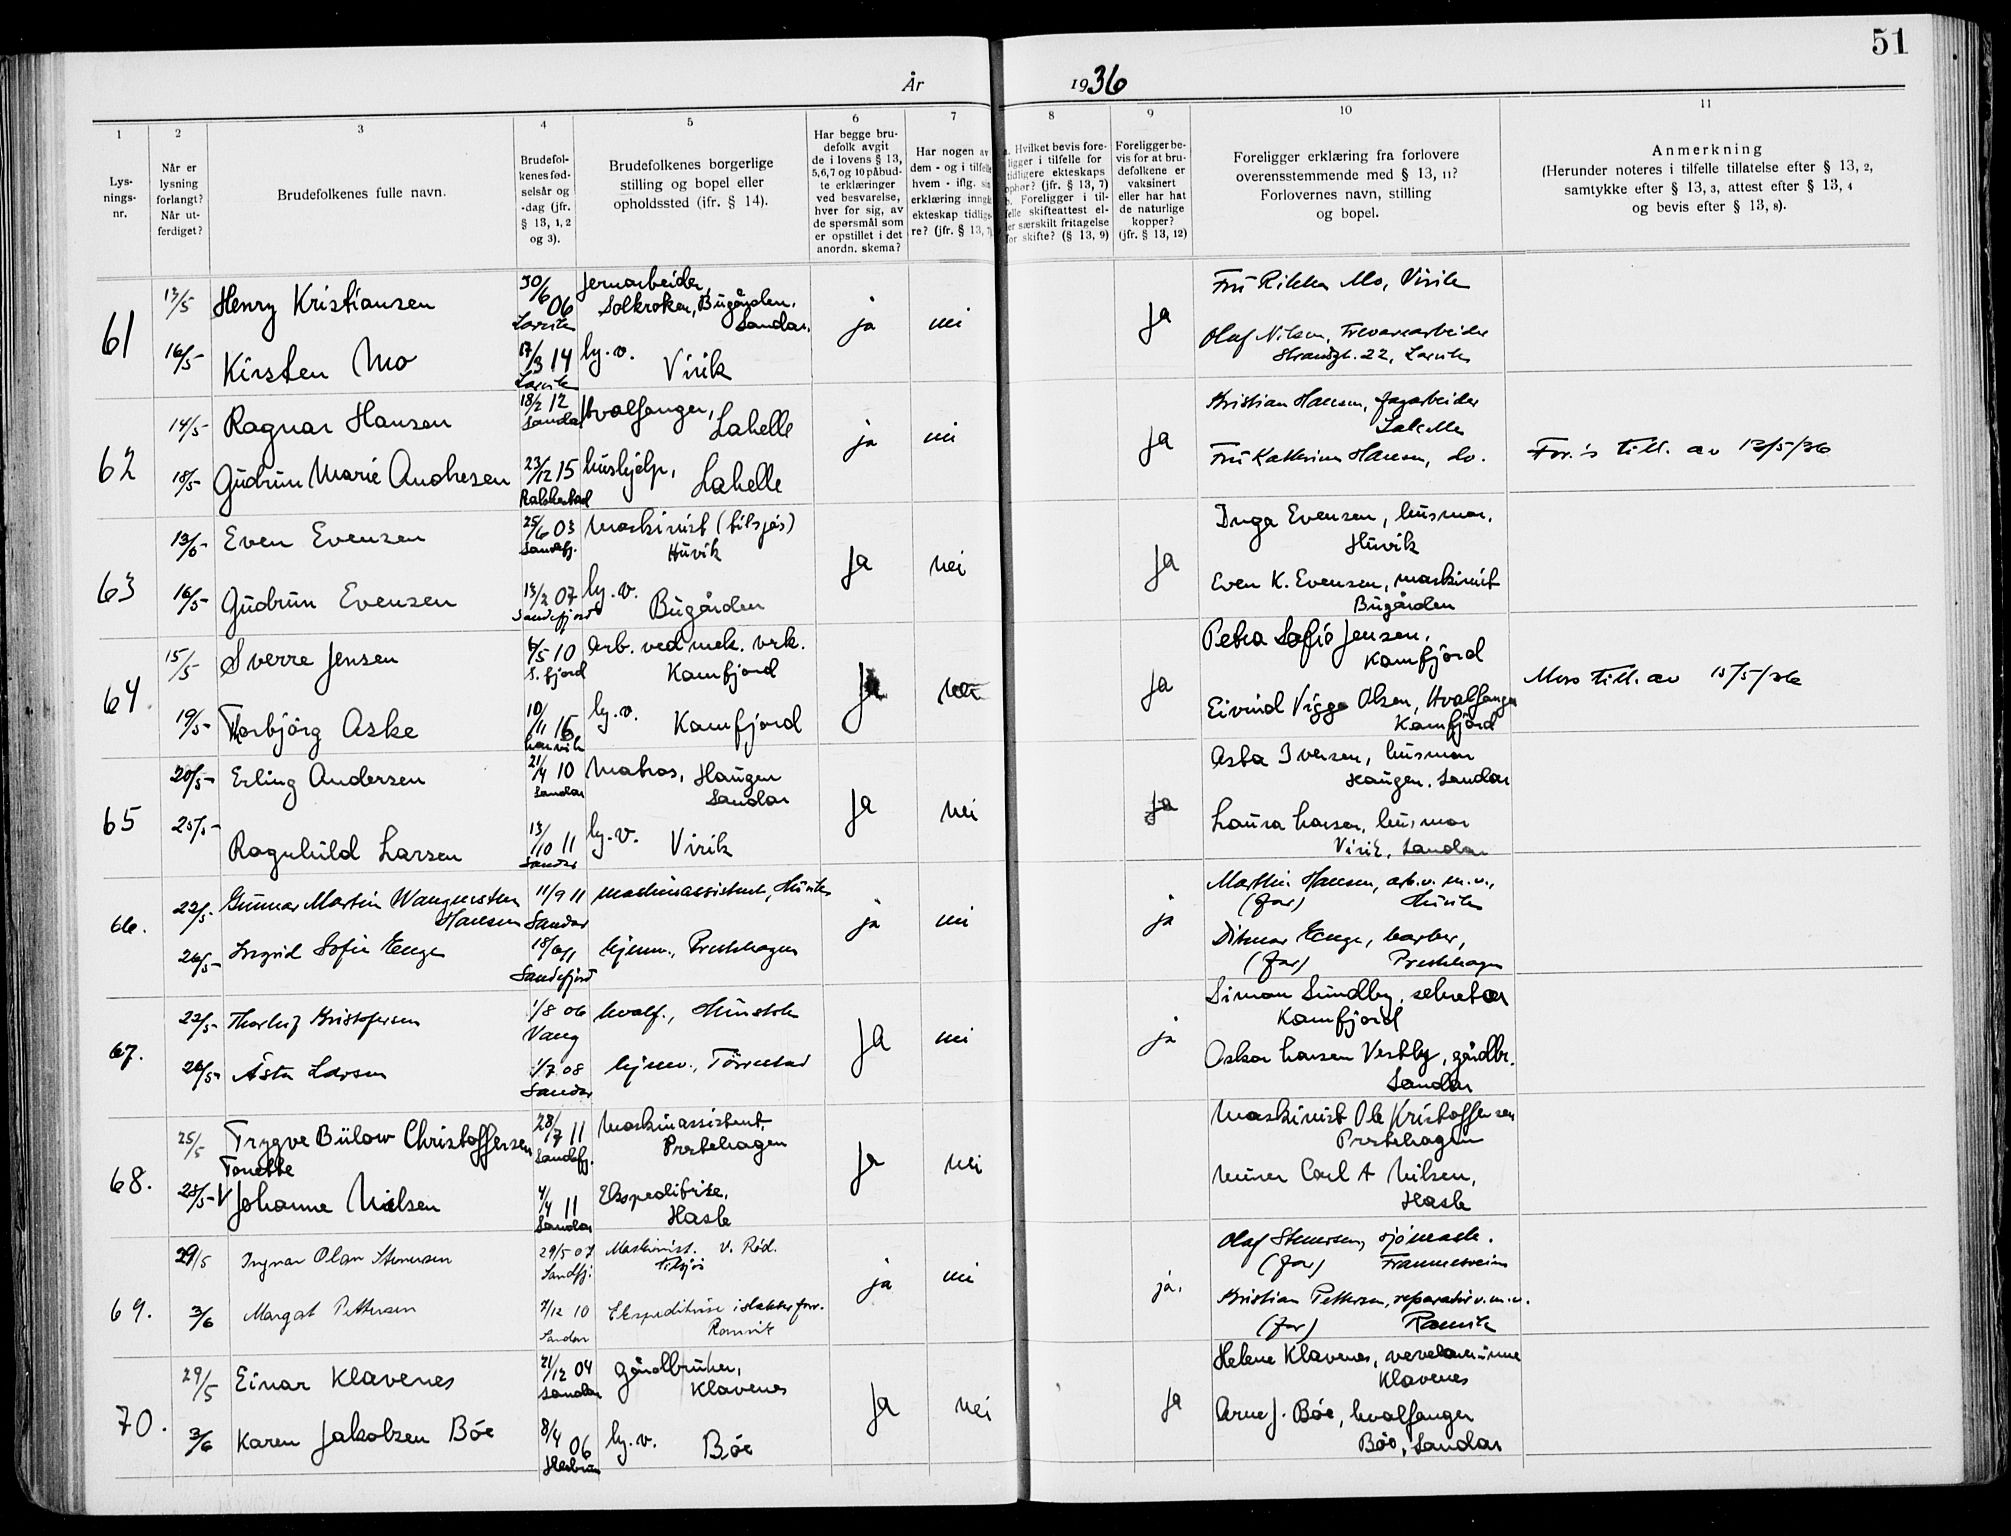 51
År 1936
1
2
3
4
5
6
7
8
9
10
11
Lys-
nings-
nr.
Når er
lysning
forlangt?
Når ut-
ferdiget?
Brudefolkenes fulle navn.
Brudefol-
kenes fød-
selsår og
-dag (jfr.
§ 13, 1, 2
og 3).
Brudefolkenes borgerlige
stilling og bopel eller
opholdssted (ifr. § 14).
Har begge bru-
defolk avgit
de i lovens § 13,
5, 6, 7 og 10 påbud-
te erklæringer
ved besvarelse,
hver for sig, av
de spørsmål som
er opstillet i det
anordn. skema?
Har nogen av
dem - og i tilfelle
hvem - iflg. sin
erklæring inngå
ekteskap tidlige-
re? (jfr. § 13, 7)
a. Hvilket bevis fore-
ligger i tilfelle for
tidligere ekteskaps
ophør? (jfr. § 13, 7)
b. Foreligger i til-
felle skifteattest el-
er særskilt fritagelse
for skifte? (§ 13, 9)
Foreligger be-
vis for at bru-
defolkene er
vaksinert
eller har hat
de naturlige
kopper?
(jfr. § 13, 12)
Foreligger erklæring fra forlovere
overensstemmende med § 13, 11?
Forlovernes navn, stilling
og bopel.
Anmerkning
(Herunder noteres i tilfelle tillatelse efter § 13, 2,
samtykke efter § 13, 3, attest efter § 13, 4
og bevis efter § 13, 8).
61
13/5 Henry Kristiansen 30/6 06 Larvik Jernarbeider,
Solkroken, Bugården,
Sandar.
ja nei ja
Fru Rikka Mo, Virik
Olaf Nilsen, Trevarearbeider
Strandgt. 22, Larvik
16/5 Kirsten Mo 17/3 14 Larvik hj. v. Virik
62
14/5 Ragnar Hansen 18/2 12 Sandar Hvalfanger,
Lahelle
ja nei ja
Kristian Hansen, fagarbeider
Lahelle
Fru Kathrine Hansen, do.
18/5 Gudrun Marie Andresen 23/12 15 hushjelp, Lahelle
For.s till. av 13/5/36
63
13/5 Even Evensen 25/6 03 Sandefj. Maskinist (tilsjøs)
Huvik
Ja nei Ja
Inga Evensen, husmor,
Huvik
Even K. Evensen, maskinist
Bugården
16/5 Gudrun Evensen 13/2 07 Sandefjord hj. v. Bugården
64
15/5 Sverre Jensen 6/5 10 S. fjord Arb. ved mek. verk.
Kamfjord
Ja nei Ja
Petra Sofie Jensen,
Kamfjord
Eivind Viggo Olsen, Hvalfanger
Kamfjord
19/5 Torbjørg Aske 10/11 16 Larvik hj. v. Kamfjord
Mors till. av 15/5/36
65
20/5 Erling Andersen 21/4 10 Sandar Matros, Haugen
Sandar
Ja nei Ja
Asta Iversen, husmor
Haugen, Sandar
Laura Larsen, husmor
Virik, Sandar
25/5 Ragnhild Larsen 13/10 11 Sandar hj. v. Virik
66.
22/5 Gunnar Martin Wangensten
Hansen 11/9 11 Sandar maskinassistent, Huvik
ja nei ja
Marthin Hansen, arb. v. m. v.,
(far) Huvik
Ditmar Enge, barber,
(far) Prestehagen
26/5 Ingrid Sofie Enge 18/6 11 Sandefjord hjemv., Prestehagen
67.
22/5 Thorleif Kristofersen 1/8 06 Vang hvalf.,
Ja nei ja
Simon Sundby, sekretær
Kamfjord
Oskar Larsen Vestby, gårdbr.
Sandar
26/5 Åsta Larsen 1/7 08 Sandar hjemv.,
68.
25/5 Trygve Bülow Christoffersen 28/7 11 Sandefj. Maskinassistent
Prestehagen
Ja nei
Maskinist Ole Kristoffersen
Prestehagen
Murer Carl A Nilsen,
Hasle
Tonette
28/5 V Johanne Nilsen 4/4 11 Sandar Ekspeditrise,
Hasle
69.
29/5 Ingvar Olav Stenersen 29/5 07 Sandfj. Maskinist. V. Rød.
Tilsjøs
ja nei ja.
Olaf Stenersen, sjømask.
(far) Framnesveien
Kristian Pettersen, reparatør v. m. v.
(far) Ranvik
3/6 Margot Pettersen 7/12 10 Sandar Ekspeditrise i slakterforr.
Ranvik
70.
29/5 Einar Klavenes 21/12 04 Sandar gårdbruker,
Klavenes
Ja nei Ja
Helene Klavenes, veveloverinne
Klavenes
Arne J. Bøe, hvalfanger
Bøe, Sandar
3/6 Karen Jakobsen Bøe 8/4 06 hj. v. Bøe